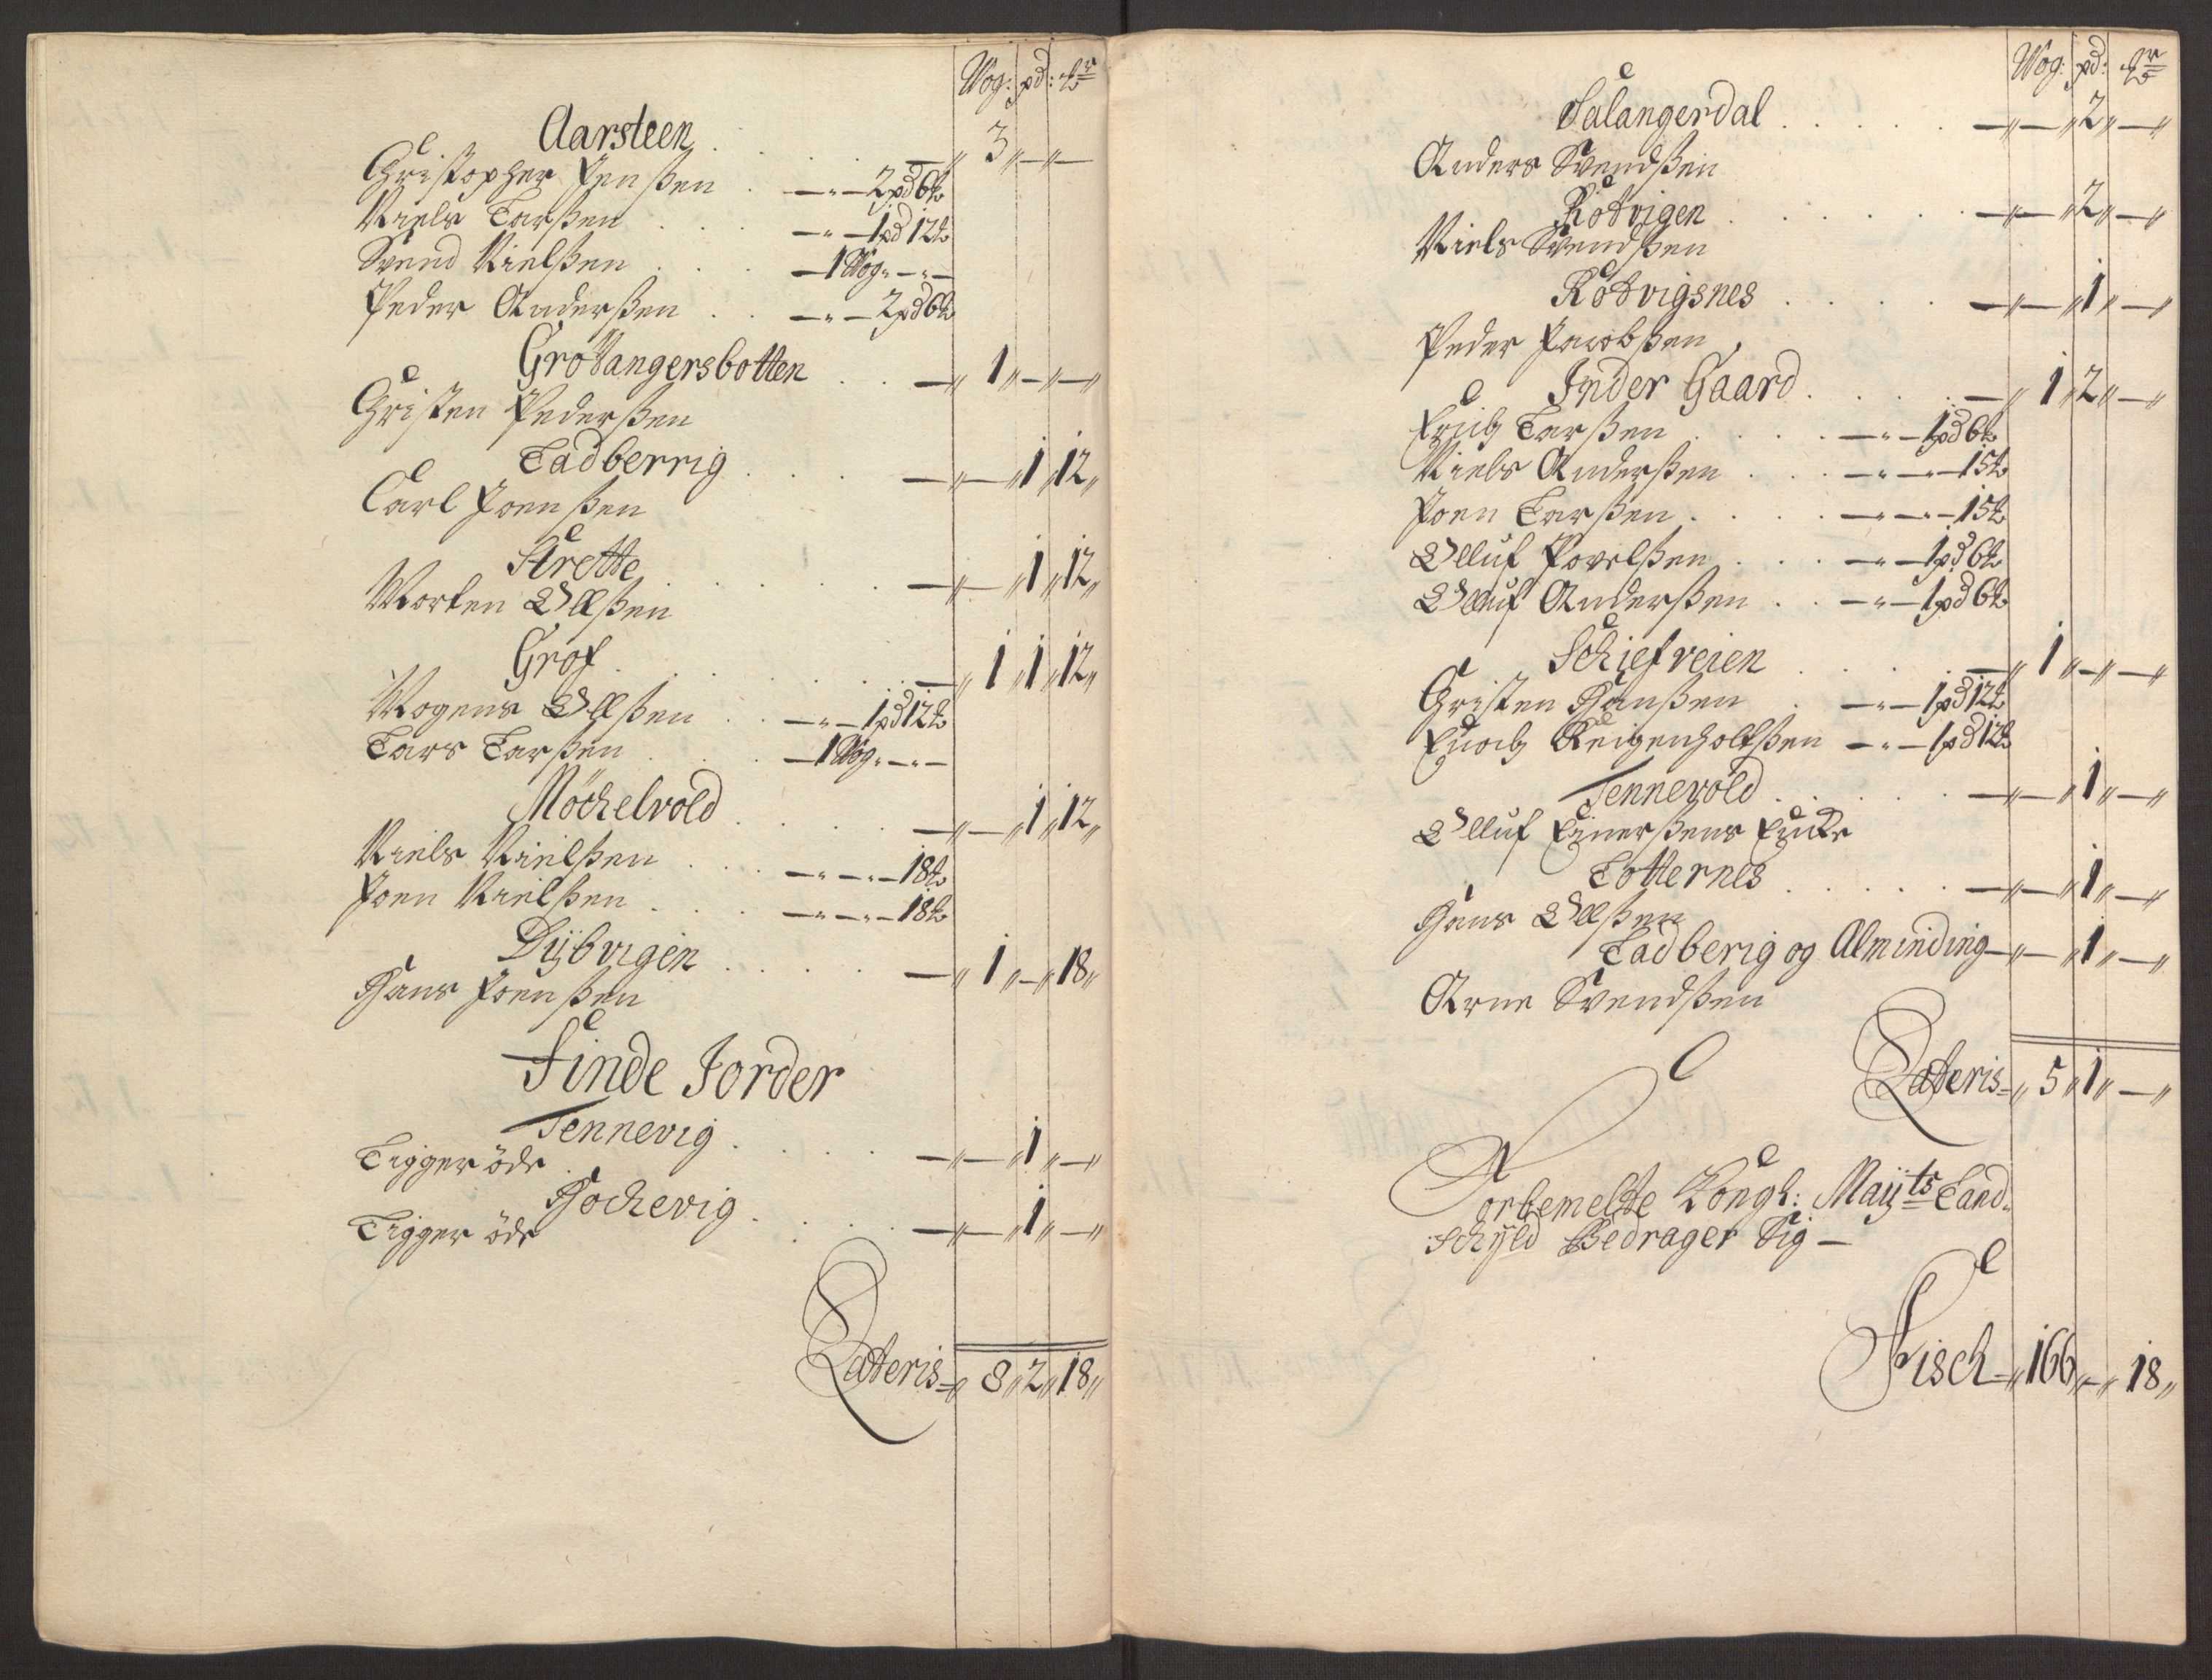 Wog: pd: 
Aarsteen . . . . . —„ 3„—„—
Christopher Jenßen . —„—2pd6℔
Niels Larßen . . . —„—1pd12℔
Svend Nielßen . . . —1Wog„—„—
Peder Anderßen . . —„—2pd6℔
Grotangersbotten . . —„ 1„—„—„
Christen Pederßen
Ladberrig . . . . —„—„1„12„
Carl Joenßen
Strette . . . . . —„—„1„12„
Morten Olßen
Grof . . . . . . —„ 1„1„12„
Mogens Olßen . . —„—1pd12℔
Lars Larßen . . . —1Wog„—„—
Möchelvold . . . . —„—„1„12„
Niels Nielßen . . . —„—„—18℔
Joen Nielßen . . . —„—„—18℔
Dÿbvigen . . . . —„ 1„—„18„
Hans Joenßen
Finde Jorder
Tennevig . . . . —„—„1„—„
Ligger öde
Hochevig . . . . —„—„1„—„
Ligger öde
Lateris=„ 8„2„18„
Wog: pd: 
Salangerdal . . . . . —„—„2„—„
Anders Svendßen
Rotvigen . . . . . . —„—„2„—„
Niels Svendßen
Rotvigsnes . . . . —„—„1„—„
Peder Jacobßen
Inder Gaard . . . . —„ 1„2„—„
Erich Larßen . . . . —„—1pd6℔
Niels Anderßen . . . —„—„—15℔
Joen Larßen . . . . —„—„—15℔
Olluf Povelßen . . . —„—1pd6℔
Olluf Anderßen . . —„—1pd6℔
Schiefveien . . . . . —„ 1„—„—„
Christen Hanßen . —„—1pd12℔
Enoch Reigenholtßen —„—1pd12℔
Tennevold . . . . . —„—„1„—„
Olluf Einerßens Encke
Lotternes . . . . . —„—„1„—„
Hans Olßen
Ladberig og Alminding —„—„1„—„
Arne Svendßen
Lateris=„ 5„1„—„
Forbemelte Kongl: Maÿts Land„
Schÿld Bedrager Sig —
Fisch=„166„—„18„